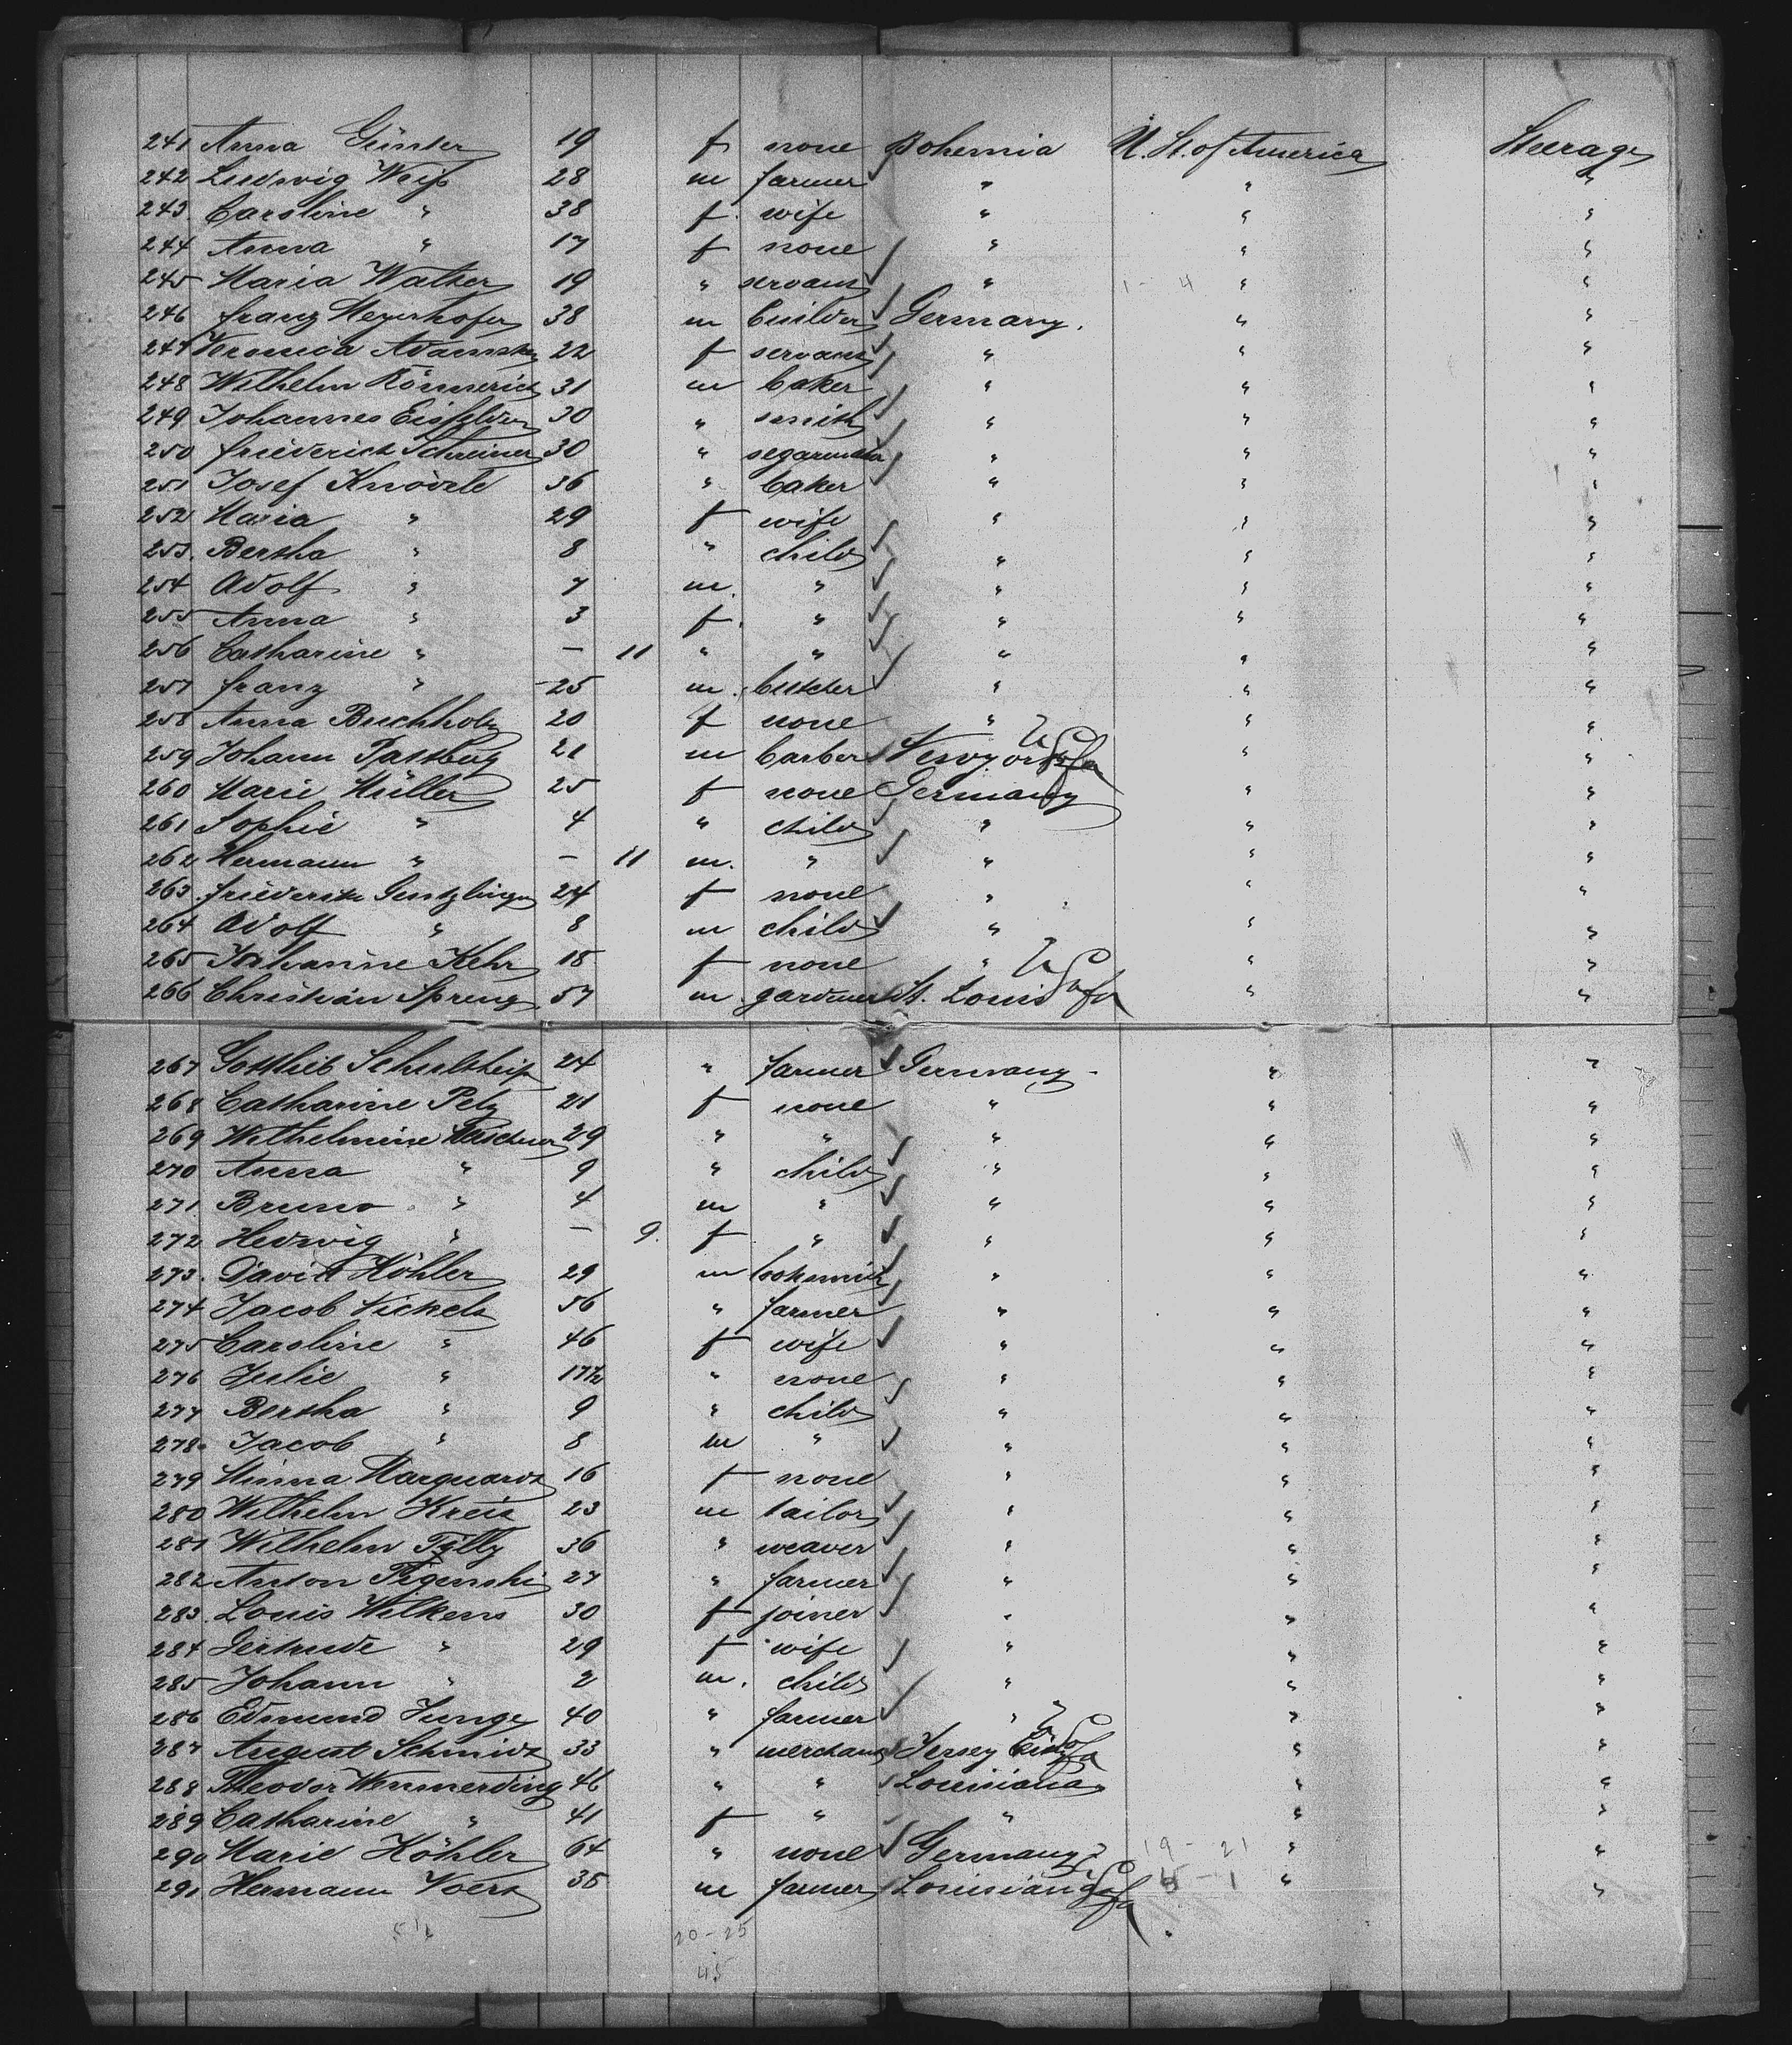 241 Anna Günter 19 f none Bohemia U. St. of America Steerage
242 Ludwig Weiß 28 m farmer " " "
243. Caroline " 38 f. wife " " "
244 Anna " 17 f none " " "
245 Maria Walter 19 " servant " 1 - 4 " "
246 Franz Meyerhofer 38 m builder Germany. " "
247 Veronica Adamsky 22 f servant " " "
248 Wilhelm Römmerich 31 m baker " " "
249 Johannes Eisfelder 30 " smith " " "
250 Friederich Schreiner 30 " segarmaker " " "
251 Josef Knövele 36 " baker " " "
252 Maria " 29 f wife " " "
253. Bertha " 8 " child " " "
254 Adolf " 7 m. " " " "
255 Anna " 3 f. " " " "
256 Catharine " — 11 " " " " "
257 Franz " 25 m. butcher " " "
258 Anna Buchholz 20 f none " " "
259 Johann Passburg 21 m barber Newyork USofA " "
260 Marie Müller 25 f none Germany " "
261 Sophie " 4 " child " " "
262 Hermann " — 11 m. " " " "
263. Friederike Gentzlinger 24 f none " " "
264 Adolf " 8 m child " " "
265 Johanne Kehr 18 f none " " "
266 Christian Spreng 57 m. gardener St. Louis USofA " "
267 Gottlieb Schultheiß 24 " farmer Germany " "
268 Catharine Pelz 21 f none " " "
269 Wilhelmine 29 " " " " "
270 Anna " 9 " child " " "
271. Bruno " 4 m " " " "
272 Hedwig " — 9. f " " " "
273. David Köhler 29 m " " "
274 Jacob Nickels 56 " farmer " " "
275 Caroline " 46 f wife " " "
276 Julie " 17½ " none " " "
277 Bertha " 9 " child " " "
278. Jacob " 8 m " " " "
279 Minna Marquardt 16 f none " " "
280 Wilhelm Kreis 23 m tailor " " "
281 Wilhelm Tilly 36 " weaver " " "
282 Anton Figenski 27 " farmer " " "
283. Louis Wilkens 30 f joiner " " "
284 Gertrude " 29 f wife " " "
285 Johann " 2 m. child " " "
286 Edmund Junge 40 " farmer " " "
287 August Schmidt 33 " merchant Jersey City USofA " "
288 Theodor Wemmerding 46 " " Louisiana " "
289 Catharine " 41 f " " " "
290 Marie Köhler 64 " none Germany 19 - 21 " "
291 Hermann Voers 35 m farmer Louisiana USofA - 1 " "
20 - 25
45